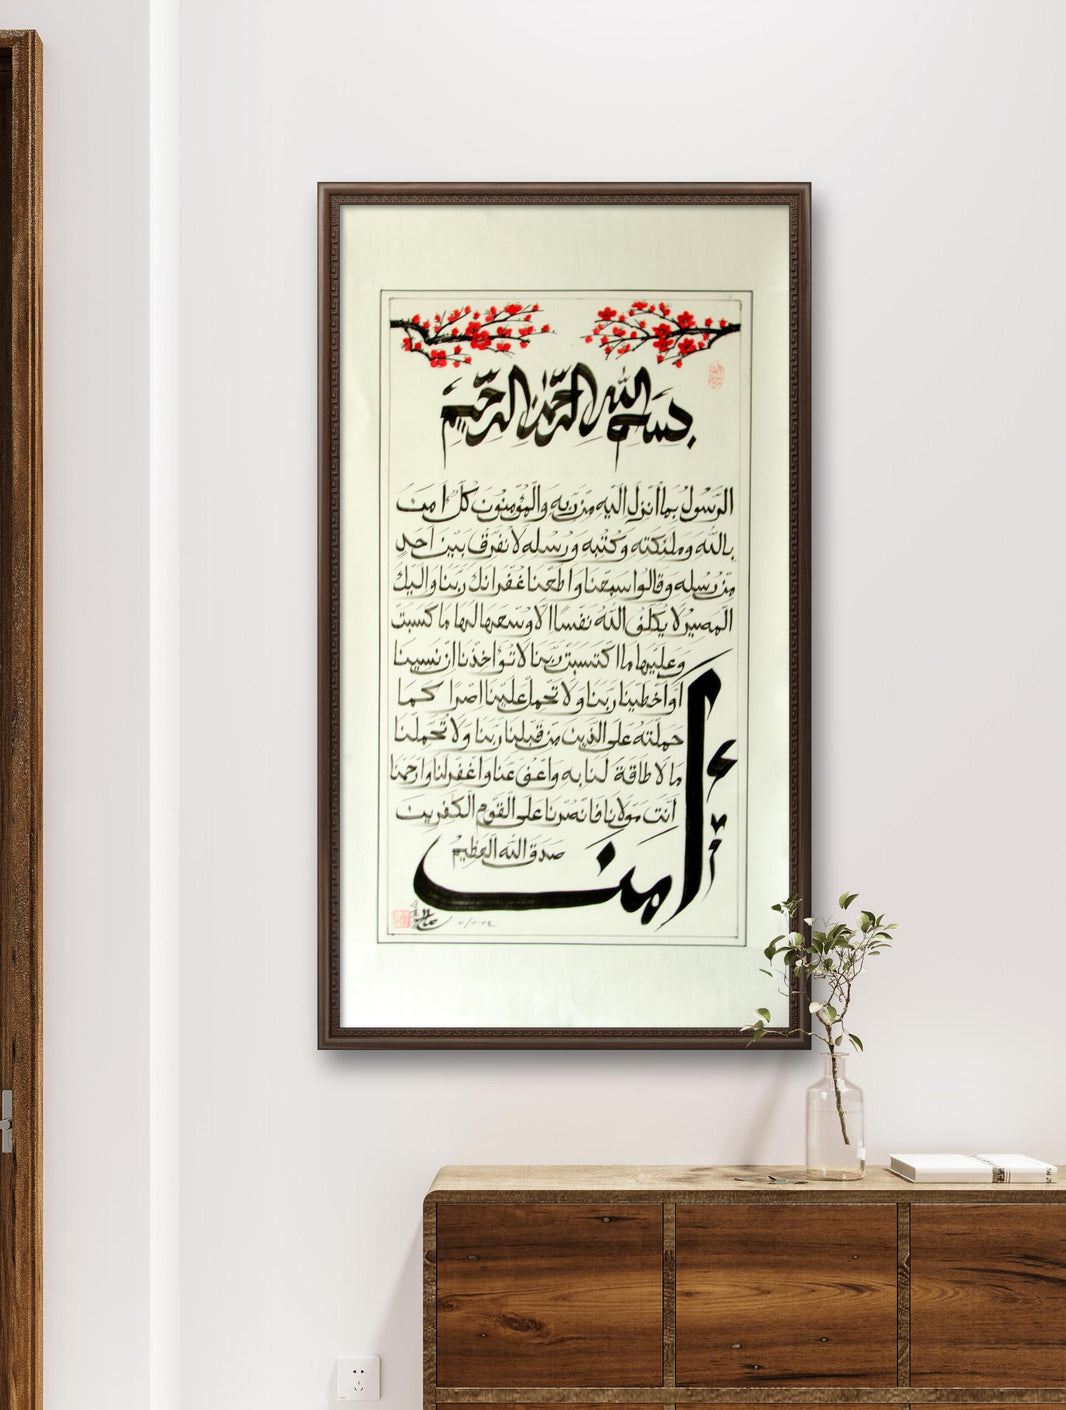 بسم الله الرحمن الرحيم
الرسول بما انزل اليه من ربه والمؤمنون كل امن
بالله وملئكته وكتبه ورسله لا نفرق بين احد
من رسله وقالوا سمعنا واطعنا غفرانك ربنا واليك
المصير لا يكلف الله نفسا الا وسعها لها ما كسبت
وعليها ما اكتسبت ربنا لا تؤاخذنا ان نسينا
او اخطينا ربنا ولا تحمل علينا اصرا كما
حملته على الذين من قبلنا ربنا ولا تحملنا
ما لا طاقة لنا به واعف عنا واغفر لنا وارحمنا
انت مولانا فانصرنا على القوم الكفرين
صدق الله العظيم
أمن